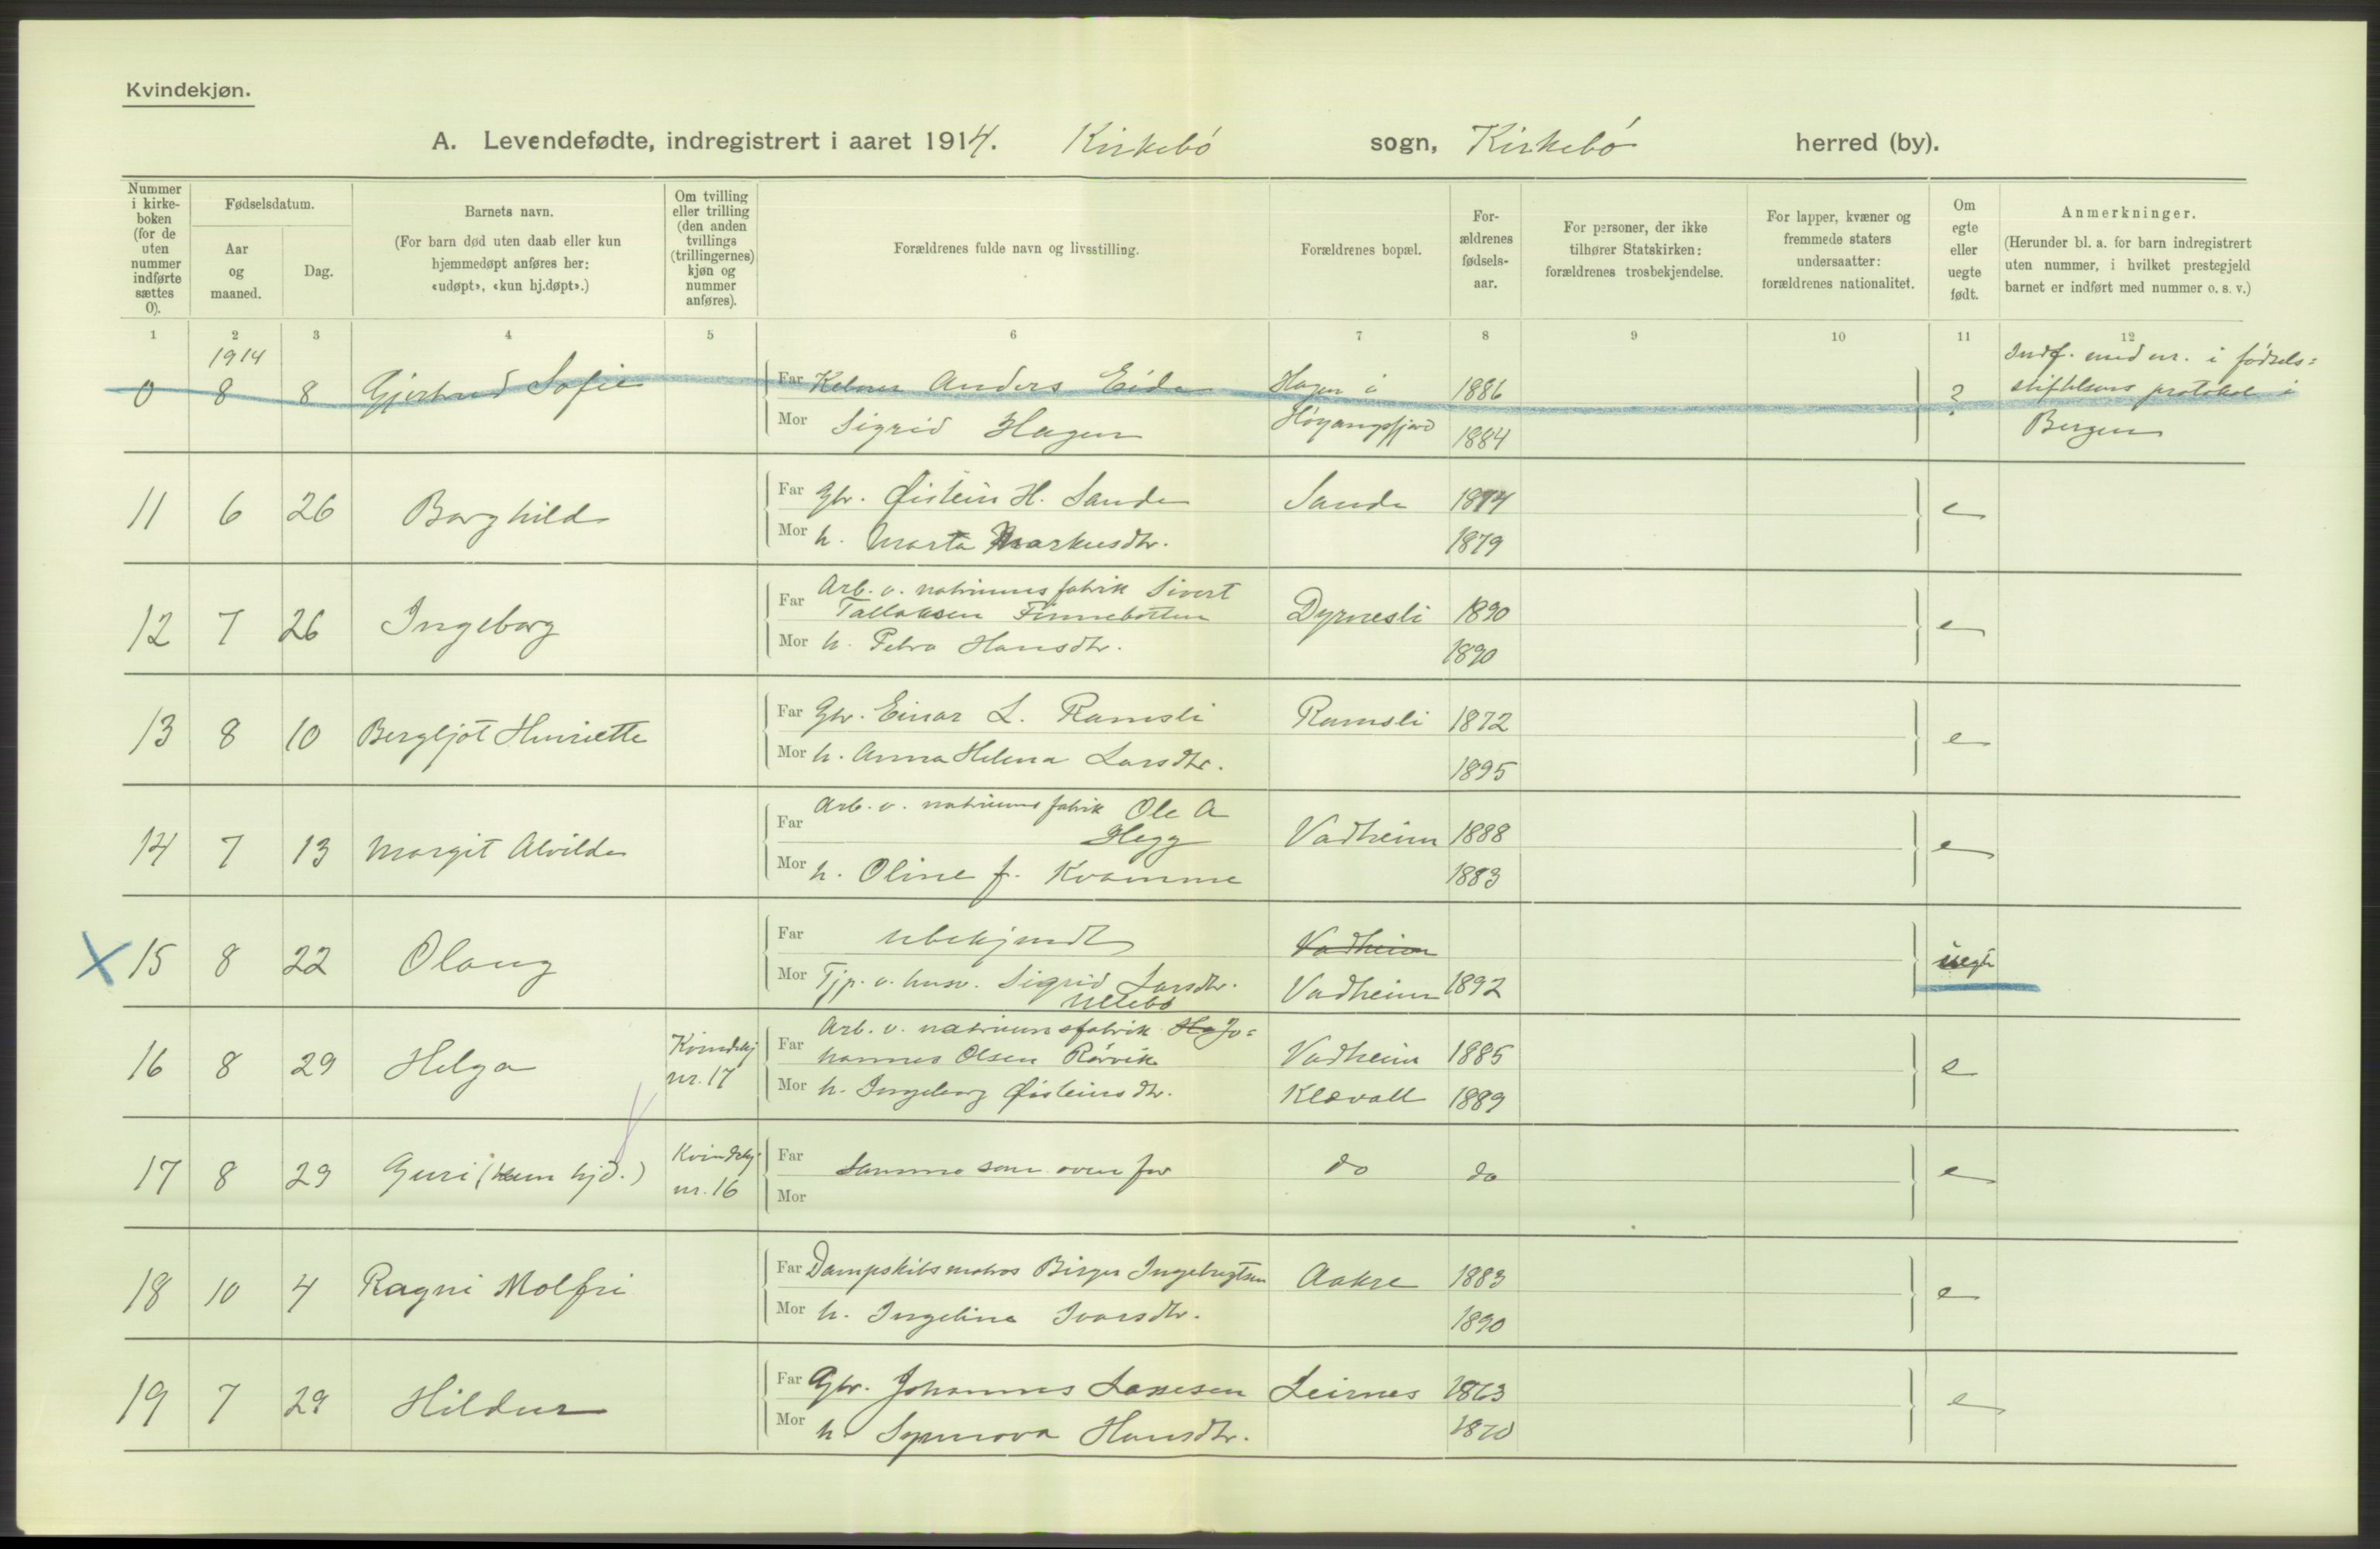 Kvindekjøn.
A. Levendefødte, indregistrert i aaret 1914. Kirkebø sogn, Kirkebø herred (by).
Nummer i kirke- boken (for de uten nummer indførte sættes 0).
Fødselsdatum.
Aar og maaned.
Dag.
Barnets navn.
(For barn død uten daab eller kun hjemmedøpt anføres her: «udøpt», «kun hj.døpt».)
Om tvilling eller trilling (den anden tvillings (trillingernes) kjøn og nummer anføres).
Forældrenes fulde navn og livsstilling.
Forældrenes bopæl.
For- ældrenes fødsels- aar.
For personer, der ikke tilhører Statskirken: forældrenes trosbekjendelse.
For lapper, kvæner og fremmede staters undersaatter: forældrenes nationalitet.
Om egte eller uegte født.
Anmerkninger.
(Herunder bl. a. for barn indregistrert uten nummer, i hvilket prestegjeld barnet er indført med nummer o. s. v.)
1 2 3 4 5 6 7 8 9 10 11 12
1914
0 8 8 Gjertrud Sofie Far Kelner Anders Eide Hagen i 1886 ? Indf. med nr. i fødsels=
stiftelsens protokol i
Mor Sigrid Hagen Høyangsfjord 1884 Bergen
11 6 26 Borghild Far Gbr. Øistein H. Sande Sande 1874 e
Mor h. Marta Markusdtr. 1879
12 7 26 Ingeborg Far Arb. v. natriumsfabrik Sivert
Tallaksen Finnebotten Dyrnesli 1890 e
Mor h. Petra Hansdtr. 1890
13 8 10 Bergljot Henriette Far Gbr. Einar L. Ramsli Ramsli 1872 e
Mor h. Anna Helena Larsdtr. 1895
14 7 13 Margit Alvilde Far Arb. v. natriumsfabrik Ole A
Hegg Vadheim 1888 e
Mor h. Oline f. Kvamme 1883
X 15 8 22 Olaug Far ubekjendt Vadheim uegte
Mor Tjp. v. husv. Sigrid Larsdtr. Vadheim 1892
Ullebø
16 8 29 Helga Kvindekj nr. 17 Far Arb. v. natriumsfabrik Ha Jo=
hannes Olsen Rørvik Vadheim 1885 e
Mor h. Ingeborg Øisteinsdtr. Klævold 1889
17 8 29 Guri (kun hjd.) Kvindekj. nr. 16 Far samme som ovenfor do do e
Mor
18 10 4 Ragni Molfri Far Dampskibsmatros Birger Ingebrigtsen Aakre 1883 e
Mor h. Ingelina Ivarsdtr. 1890
19 7 29 Hildur Far Gbr. Johannes Lassesen Leirnes 1863 e
Mor h. Synnova Hansdtr. 1870